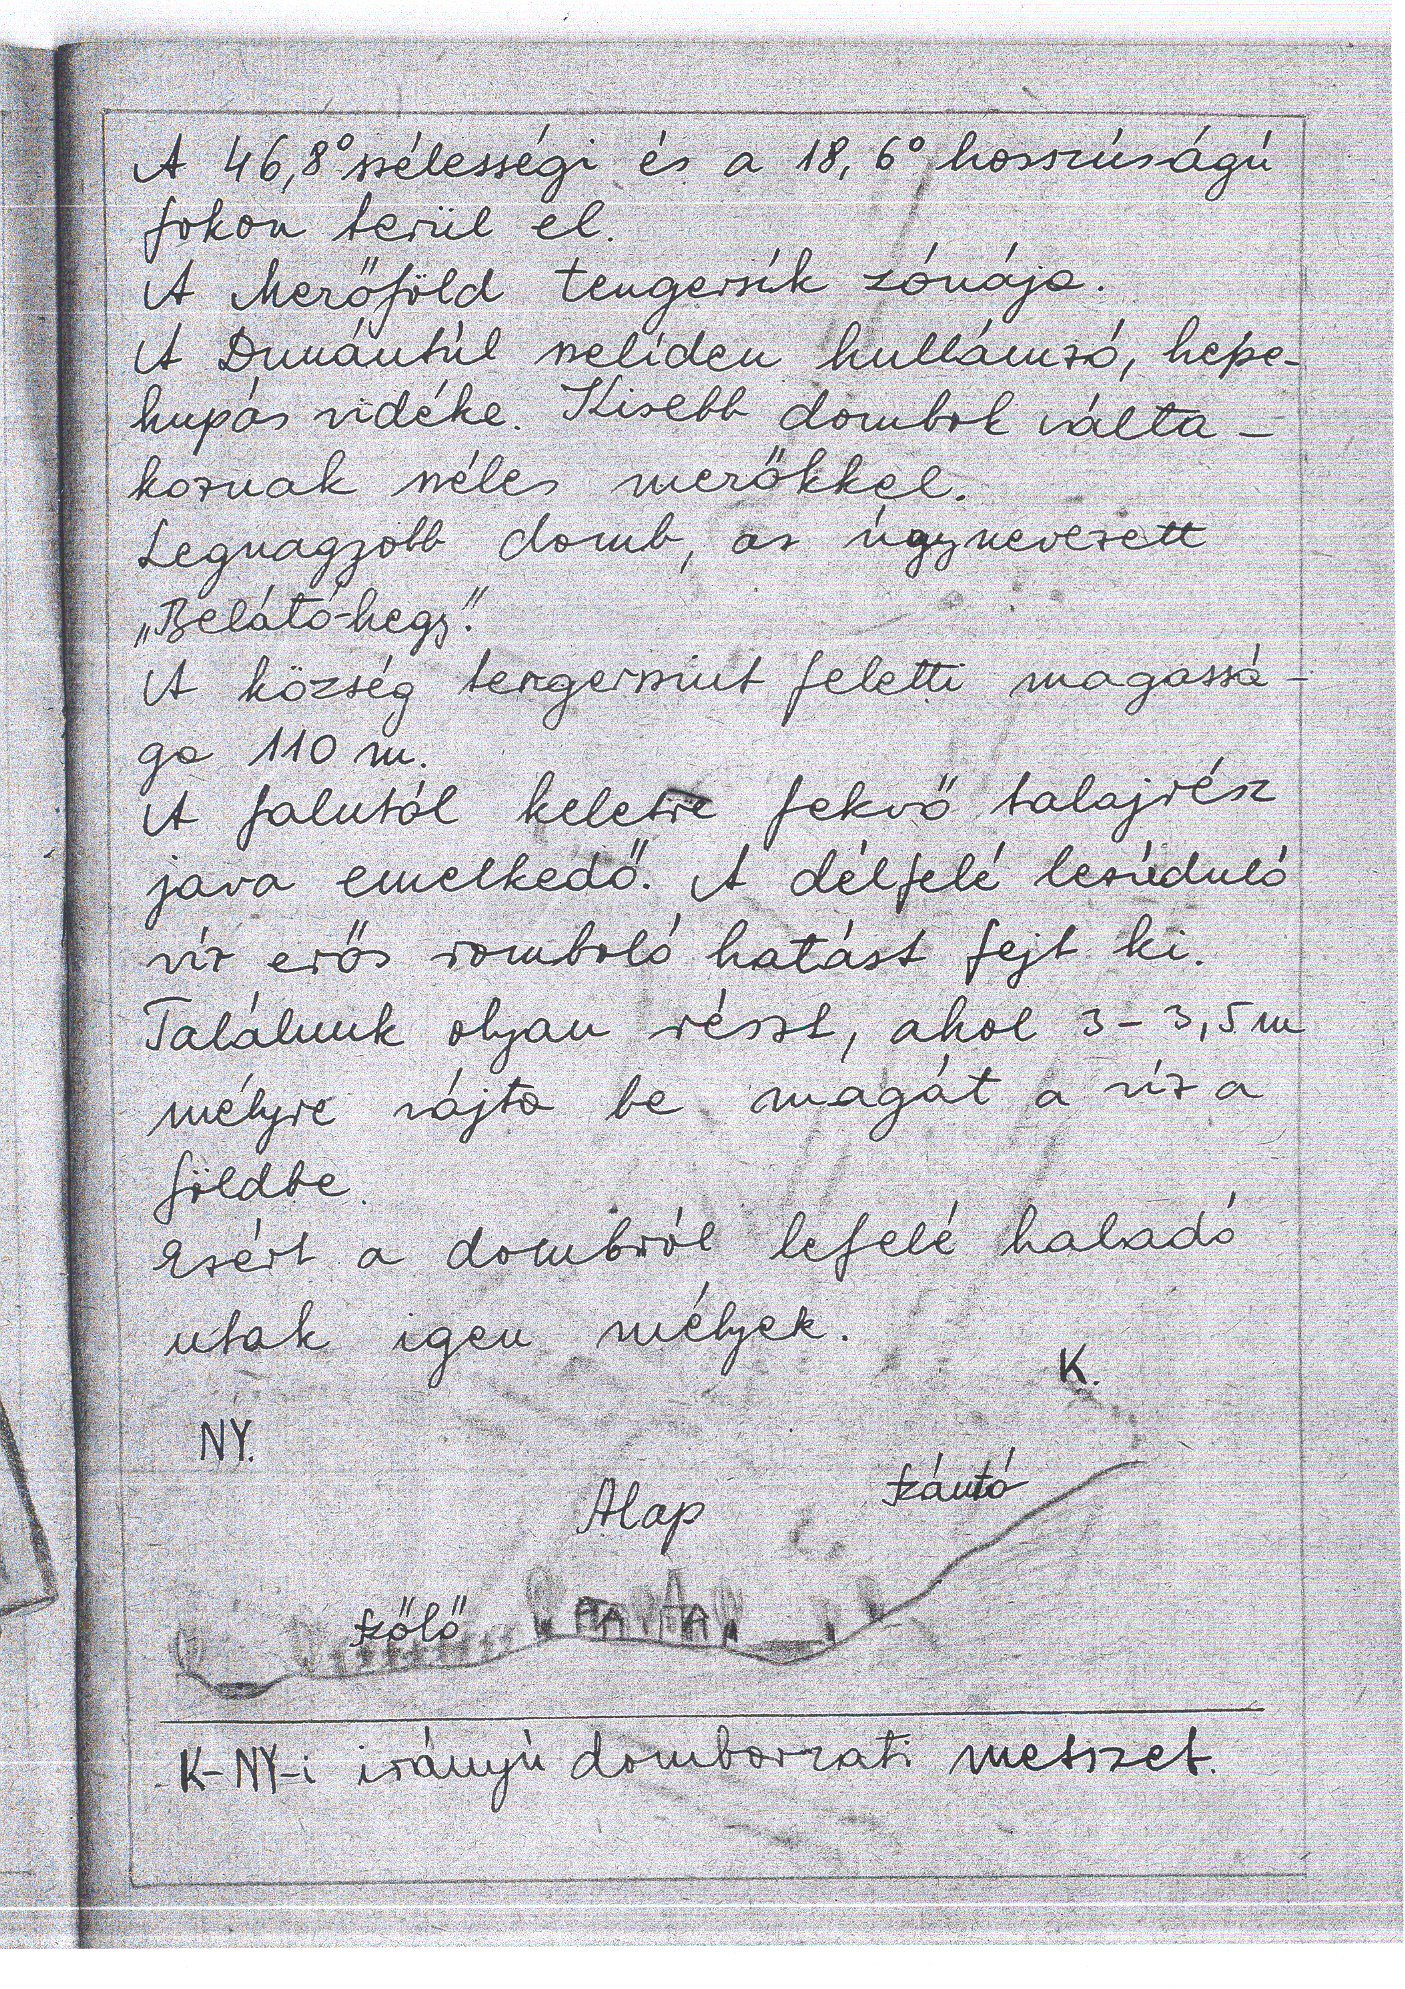 A 46,8° szélességi és a 18,6° hosszúságú
fokon terül el.
A Mezőföld tengersík zónája.
A Dunántúl szelíden hullámzó, hepe-
hupás vidéke. Kisebb dombok válta-
koznak széles mezőkkel.
Legnagyobb domb, az úgynevezett
„Belátó-hegy".
A község tengerszint feletti magassá-
ga 110 m.
A falutól keletre fekvő talajrész
java emelkedő. A délfelé lezúduló
víz erős romboló hatást fejt ki.
Találunk olyan részt, ahol 3-3,5 m
mélyre vájta be magát a víz a
földbe.
Ezért a dombról lefelé haladó
utak igen mélyek.
K.
NY.
Szántó
Alap
Szőlő
K-NY-i irányú domborzati metszet.